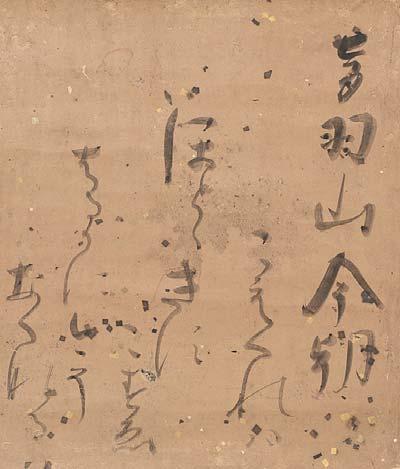 音羽山今朝
こえくれハ
ほとゝきす
こすゑ
はるかに今そ
なくなる